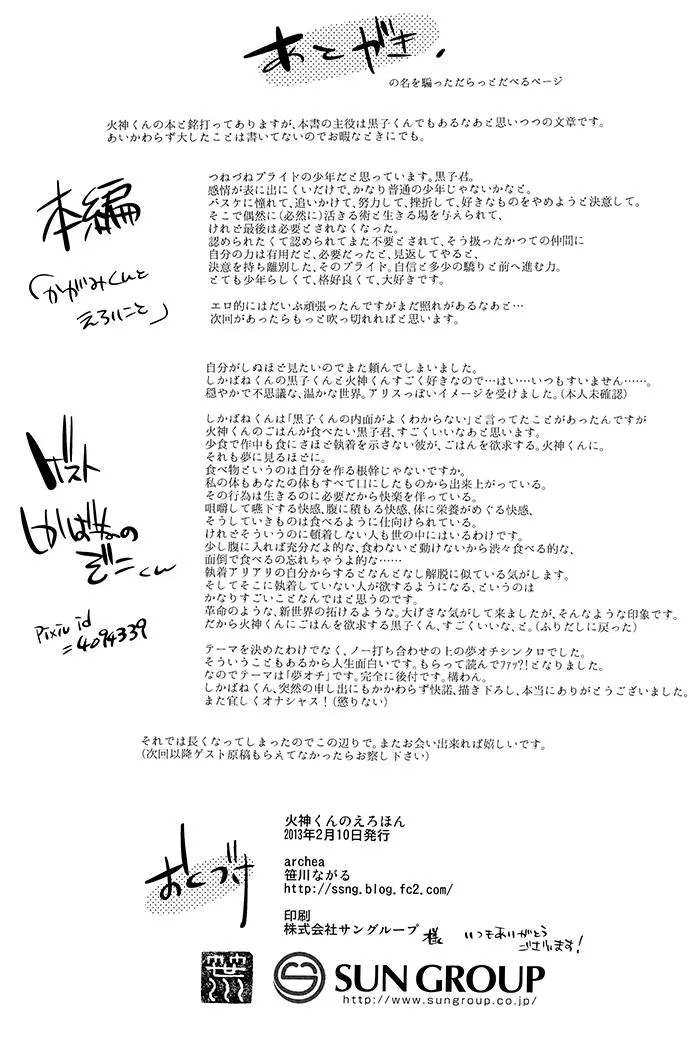 あとがき。
の名を騙っただらっとだべるページ
火神くんの本と銘打ってありますが、本書の主役は黒子くんでもあるなあと思いつつの文章です。
あいかわらず大したことは書いてないのでお暇なときにでも。
本編
「かがみくんと
えろいこと」
つねづねプライドの少年だと思っています。黒子君。
感情が表に出にくいだけで、かなり普通の少年じゃないかなと。
バスケに憧れて、追いかけて、努力して、挫折して、好きなものをやめようと決意して。
そこで偶然に(必然に)活きる術と生きる場を与えられて、
けれど最後は必要とされなくなった。
認められたくて認められてまた不要とされて、そう扱ったかつての仲間に
自分の力は有用だと、必要だったと、見返してやると、
決意を持ち離別した、そのプライド。自信と多少の驕りと前へ進む力。
とても少年らしくて、格好良くて、大好きです。
エロ的にはだいぶ頑張ったんですがまだ照れがあるなあと…
次回があったらもっと吹っ切れればと思います。
ゲスト
しかばねの
ぞーくん
Pixiv id
=4094339
自分がしぬほど見たいのでまた頼んでしまいました。
しかばねくんの黒子くんと火神くんすごく好きなので…はい…いつもすいません……。
穏やかで不思議な、温かな世界。アリスっぽいイメージを受けました。(本人未確認)
しかばねくんは「黒子くんの内面がよくわからない」と言ってたことがあったんですが
火神くんのごはんが食べたい黒子君、すごくいいなあと思います。
少食で作中も食にさほど執着を示さない彼が、ごはんを欲求する。火神くんに。
それも夢に見るほどに。
食べ物というのは自分を作る根幹じゃないですか。
私の体もあなたの体もすべて口にしたものから出来上がっている。
その行為は生きるのに必要だから快楽を伴っている。
咀嚼して嚥下する快感、腹に積もる快感、体に栄養がめぐる快感、
そうしていきものは食べるように仕向けられている。
けれどそういうのに頓着しない人も世の中にはいるわけです。
少し腹に入れば充分だよ的な、食わないと動けないから渋々食べる的な、
面倒で食べるの忘れちゃうよ的な……
執着アリアリの自分からするとなんとなし解脱に似ている気がします。
そしてそこに執着していない人が欲するようになる、というのは
かなりすごいことなんではと思うのです。
革命のような、新世界の拓けるような。大げさな気がして来ましたが、そんなような印象です。
だから火神くんにごはんを欲求する黒子くん、すごくいいな、と。(ふりだしに戻った)
テーマを決めたわけでなく、ノー打ち合わせの上の夢オチシンクロでした。
そういうこともあるから人生面白いです。もらって読んでファッ?!となりました。
なのでテーマは「夢オチ」です。完全に後付です。構わん。
しかばねくん、突然の申し出にもかかわらず快諾、描き下ろし、本当にありがとうございました。
また宜しくオナシャス!(懲りない)
それでは長くなってしまったのでこの辺りで。またお会い出来れば嬉しいです。
(次回以降ゲスト原稿もらえてなかったらお察し下さい)
おくづけ
火神くんのえろほん
2013年2月10日発行
archea
笹川ながる
http://ssng.blog.fc2.com/
印刷
株式会社サングループ 様 いつもありがとう
ございます!
SUN GROUP
http://www.sungroup.co.jp/